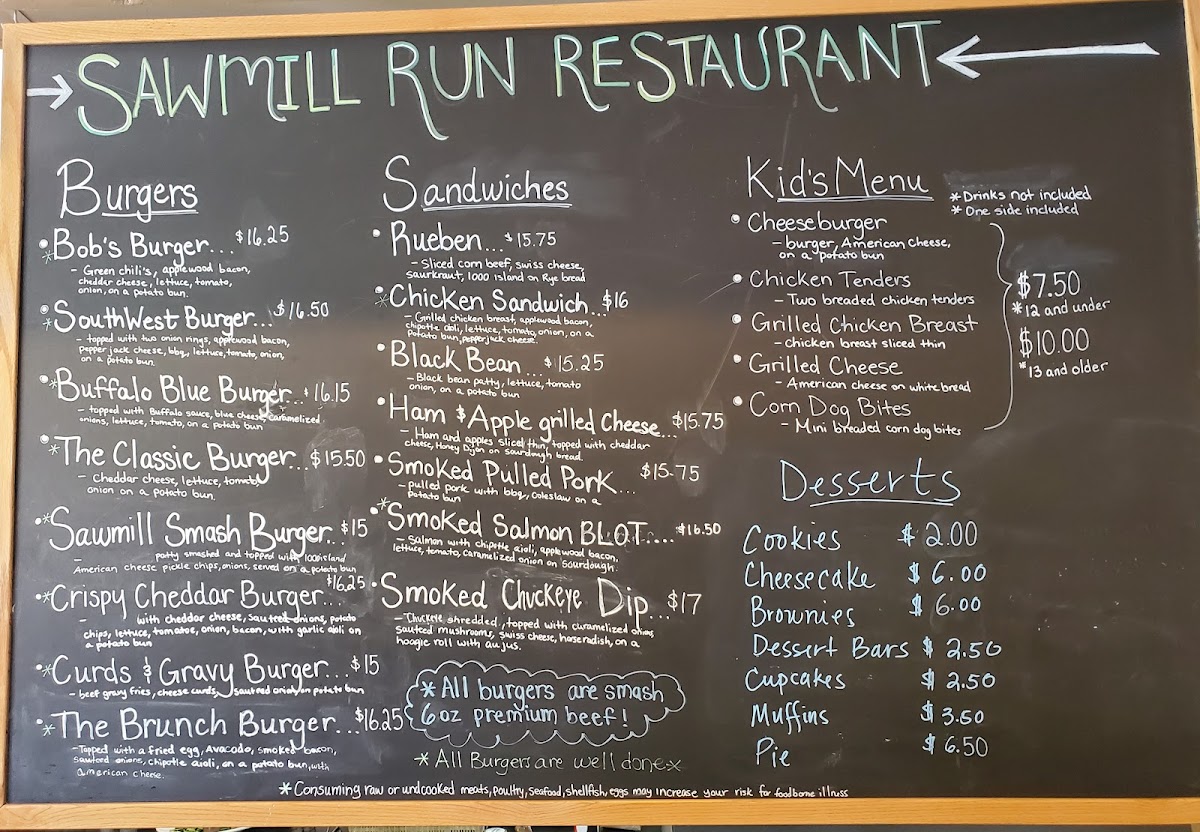 SAWMILL RUN RESTAURANT
Burgers
• * Bob's Burger... $16.25
- Green chili's, applewood bacon,
cheddar cheese, lettuce, tomato,
onion, on a potato bun.
• * SouthWest Burger... $16.50
- topped with two onion rings, applewood bacon,
pepper jack cheese, bbq, lettuce, tomato, onion,
on a potato bun.
• * Buffalo Blue Burger... $16.15
- topped with Buffalo sauce, blue cheese, caramelized
onions, lettuce, tomato, on a potato bun
• * The Classic Burger... $15.50
- Cheddar cheese, lettuce, tomato
onion on a potato bun.
• * Sawmill Smash Burger... $15
- patty smashed and topped with 1000 island
American cheese pickle chips, onions, served on a potato bun
• * Crispy Cheddar Burger... $16.25
- with cheddar cheese, sauteed onions, potato
chips, lettuce, tomatoe, onion, bacon, with garlic aioli on
a potato bun
• * Curds & Gravy Burger... $15
- beef gravy fries, cheese curds, sauteed onion, on potato bun
• * The Brunch Burger... $16.25
- Topped with a fried egg, Avacado, smoked bacon,
sauteed onions, chipotle aioli, on a potato bun, with
american cheese.
Sandwiches
• Rueben... $15.75
- Sliced corn beef, swiss cheese,
saurkraut, 1000 island on Rye bread
• * Chicken Sandwich... $16
- Grilled chicken breast, applewood bacon,
chipotle aioli, lettuce, tomato, onion, on a
potato bun, pepperjack cheese.
• Black Bean ... $15.25
- Black bean patty, lettuce, tomato
onion, on a potato bun
• Ham & Apple grilled Cheese... $15.75
- Ham and apples sliced thin, topped with cheddar
cheese, Honey Dijon on sourdough bread.
• Smoked Pulled Pork... $15.75
- pulled pork with bbq, coleslaw on a
potato bun
• * Smoked Salmon BLOT.... $16.50
- Salmon with chipotle aioli, applewood bacon,
lettuce, tomato, caramelized onion on sourdough.
• Smoked Chuckeye Dip... $17
- Chuckeye shredded, topped with caramelized onions,
sauteed mushrooms, swiss cheese, horseradish, on a
hoagie roll with au jus.
* All burgers are smash
6oz premium beef!
* All Burgers are well done *
Kid's Menu
* Drinks not included
* One side included
• Cheeseburger
- burger, American cheese,
on a potato bun
• Chicken Tenders
- Two breaded chicken tenders
• Grilled Chicken Breast
- chicken breast sliced thin
• Grilled Cheese
- American cheese on white bread
• Corn Dog Bites
- Mini breaded corn dog bites
$7.50
* 12 and under
$10.00
* 13 and older
Desserts
Cookies $2.00
Cheesecake $6.00
Brownies $6.00
Dessert Bars $2.50
Cupcakes $2.50
Muffins $3.50
Pie $6.50
* Consuming raw or undcooked meats, poultry, seafood, shellfish, eggs may increase your risk for foodborne illness